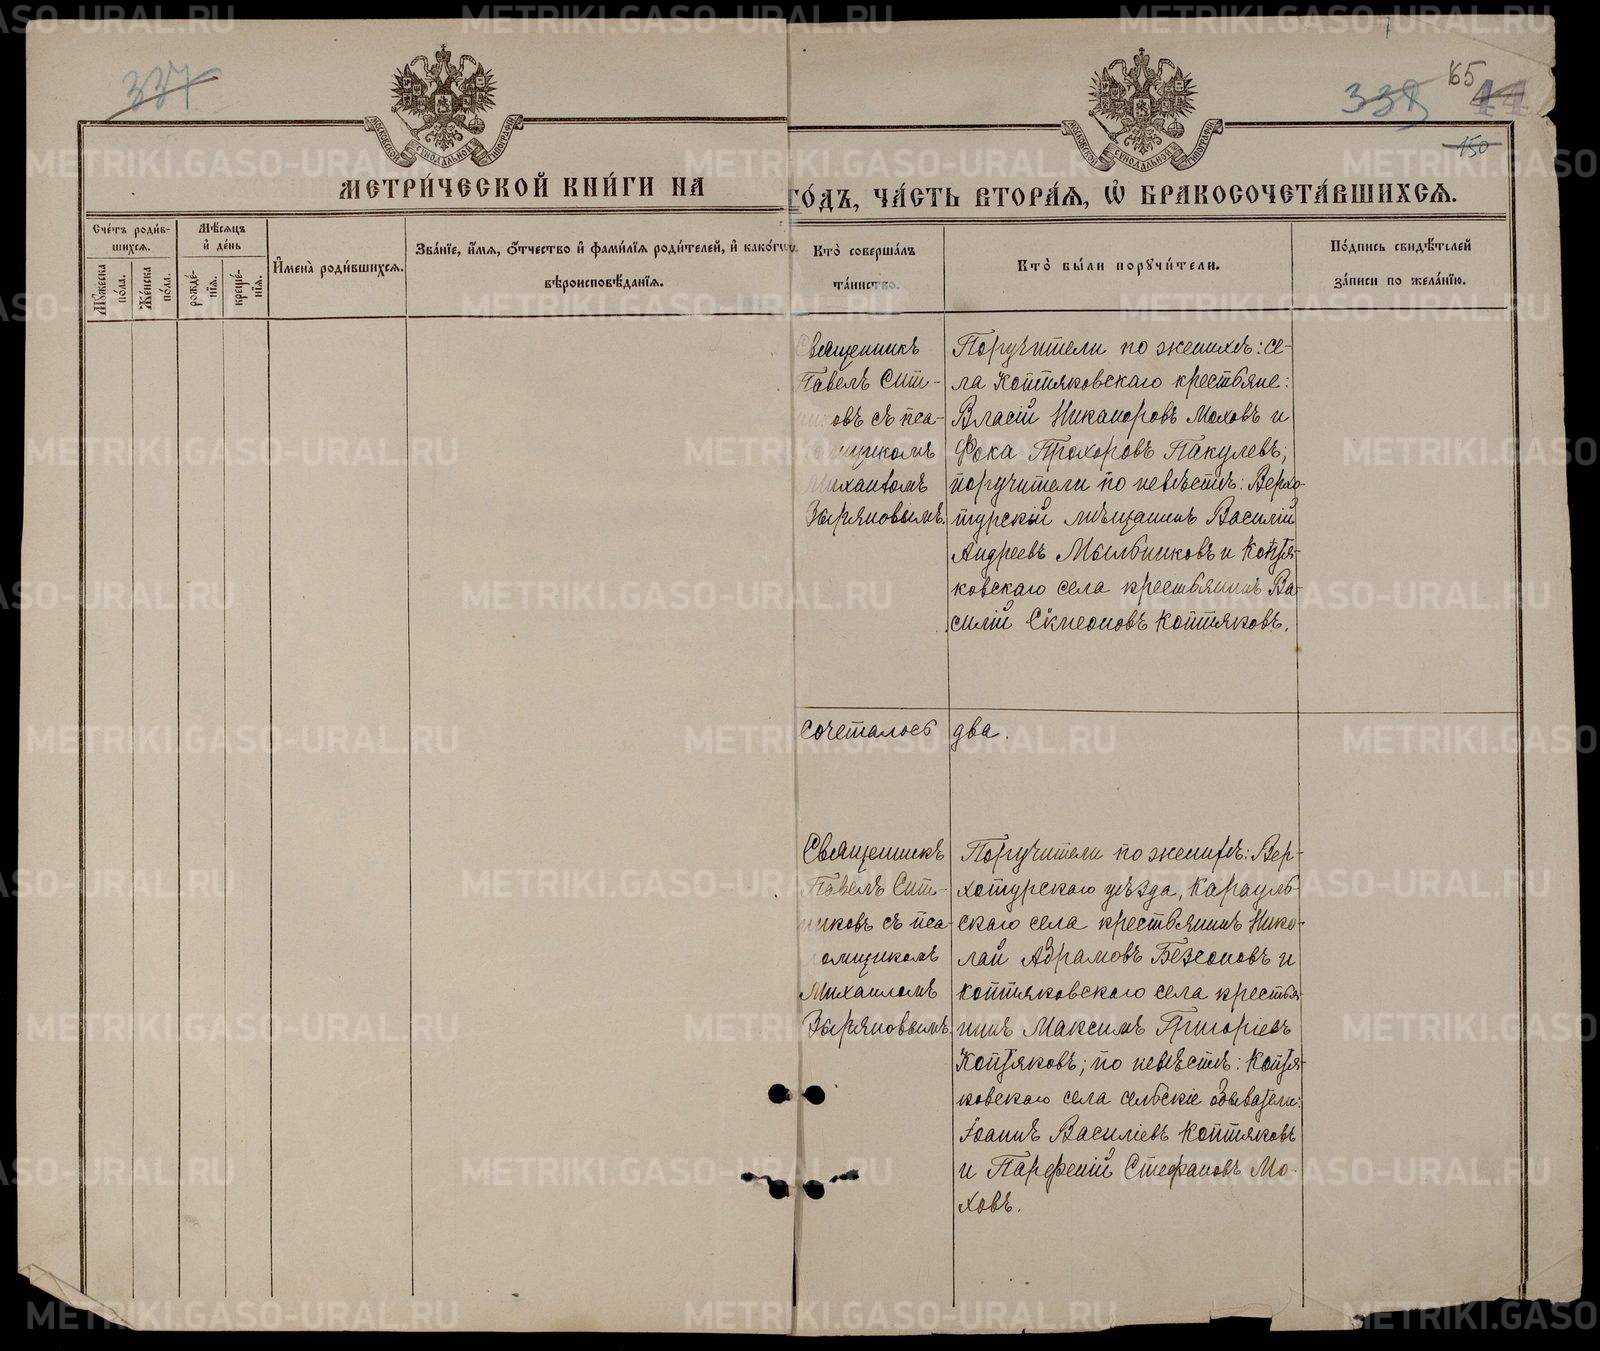 337
338
65
44
150
МОСКОВСКОЙ СѴНОДАЛЬНОЙ ТИПОГРАФІИ
МОСКОВСКОЙ СѴНОДАЛЬНОЙ ТИПОГРАФІИ
МЕТРИ́ЧЕСКОЙ КНИ́ГИ НА
ГО́ДЪ, ЧА́СТЬ ВТОРА́Я, Ѡ҆ БРАКОСОЧЕТА́ВШИХСЯ.
Сче́тъ роди́в-
шихся.
Мѣ́сяцъ
и҆ де́нь
Мꙋ́жеска
по́ла.
Же́нска
по́ла.
рожде́-
нїя.
креще́-
нїя.
И҆мена̀ роди́вшихся.
Зва́нїе, и҆́мя, ѻ҆́тчество и҆ фами́лїя роди́телей, и҆ како́гѡ
вѣроисповѣ́данїя.
Кто̀ соверша́лъ
та́инство.
Кто̀ бы́ли порꙋчи́тели.
По́дпись свидѣ́телей
за́писи по жела́нїю.
Священникъ
Павелъ Сит-
никовъ съ пса-
ломщикомъ
Михаиломъ
Зыряновымъ.
Поручители по женихѣ: се-
ла Коптяковскаго крестьяне:
Власій Никаноровъ Моховъ и
Фока Прохоровъ Пакулевъ;
поручители по невѣстѣ: Верхо-
турскій мѣщанинъ Василій
Андреевъ Мыльниковъ и Коптя-
ковскаго села крестьянинъ Ва-
силій Симеоновъ Коптяковъ.
сочеталось два.
Священникъ
Павелъ Сит-
никовъ съ пса-
ломщикомъ
Михаиломъ
Зыряновымъ
Поручители по женихѣ: Вер-
хотурскаго уѣзда, Карауль-
скаго села крестьянинъ Нико-
лай Абрамовъ Безсоновъ и
Коптяковскаго села крестья-
нинъ Максимъ Григоріевъ
Коптяковъ; по невѣстѣ: Коптя-
ковскаго села сельскіе обыватели:
Іоаннъ Василіевъ Коптяковъ
и Парфеній Стефановъ Мо-
ховъ.
METRIKI.GASO-URAL.RU